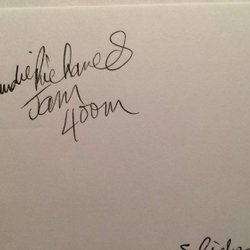 ndie Richards
Jam
400m
S Richa